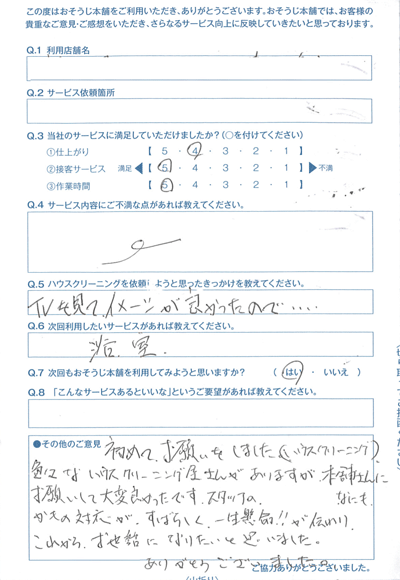 この度はおそうじ本舗をご利用いただき、ありがとうございます。おそうじ本舗では、お客様の
貴重なご意見・ご感想をいただき、さらなるサービス向上に反映していきたいと思っております。
Q.1 利用店舗名
Q.2 サービス依頼箇所
Q.3 当社のサービスに満足していただけましたか？（○を付けてください）
①仕上がり 【 5 ・ 4 ・ 3 ・ 2 ・ 1 】
②接客サービス 満足 ◀【 5 ・ 4 ・ 3 ・ 2 ・ 1 】▶ 不満
③作業時間 【 5 ・ 4 ・ 3 ・ 2 ・ 1 】
Q.4 サービス内容にご不満な点があれば教えてください。
Q.5 ハウスクリーニングを依頼 ようと思ったきっかけを教えてください。
TVを見て、イメージが良かったので‥‥
Q.6 次回利用したいサービスがあれば教えてください。
浴室
Q.7 次回もおそうじ本舗を利用してみようと思いますか？ （ はい ・ いいえ ）
Q.8 「こんなサービスあるといいな」というご要望があれば教えてください。
●その他のご意見 初めて、お願いをしました（ハウスクリーニング）
色々なハウスクリーニング屋さんがありますが、本舗さんに
お願いして大変良かったです。スタッフの、 なにも
かもの対応が、すばらしく、一生懸命!!が伝わり、
これから、お世話になりたいと思いました。
ありがとうございました。
ご協力ありがとうございました。